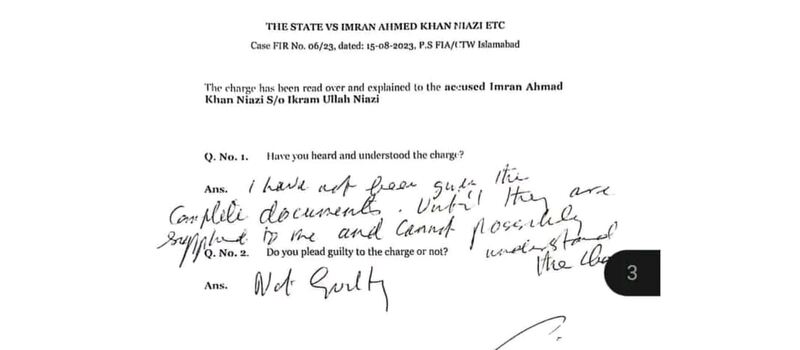 THE STATE VS IMRAN AHMED KHAN NIAZI ETC
Case FIR No. 06/23, dated: 15-08-2023, P.S FIA/CTW Islamabad
The charge has been read over and explained to the accused Imran Ahmad
Khan Niazi S/o Ikram Ullah Niazi
Q. No. 1. Have you heard and understood the charge?
Ans. I have not been given the
complete documents. Until they are
supplied to me and cannot possibly
understand
the
Q. No. 2. Do you plead guilty to the charge or not?
Ans. Not Guilty
3